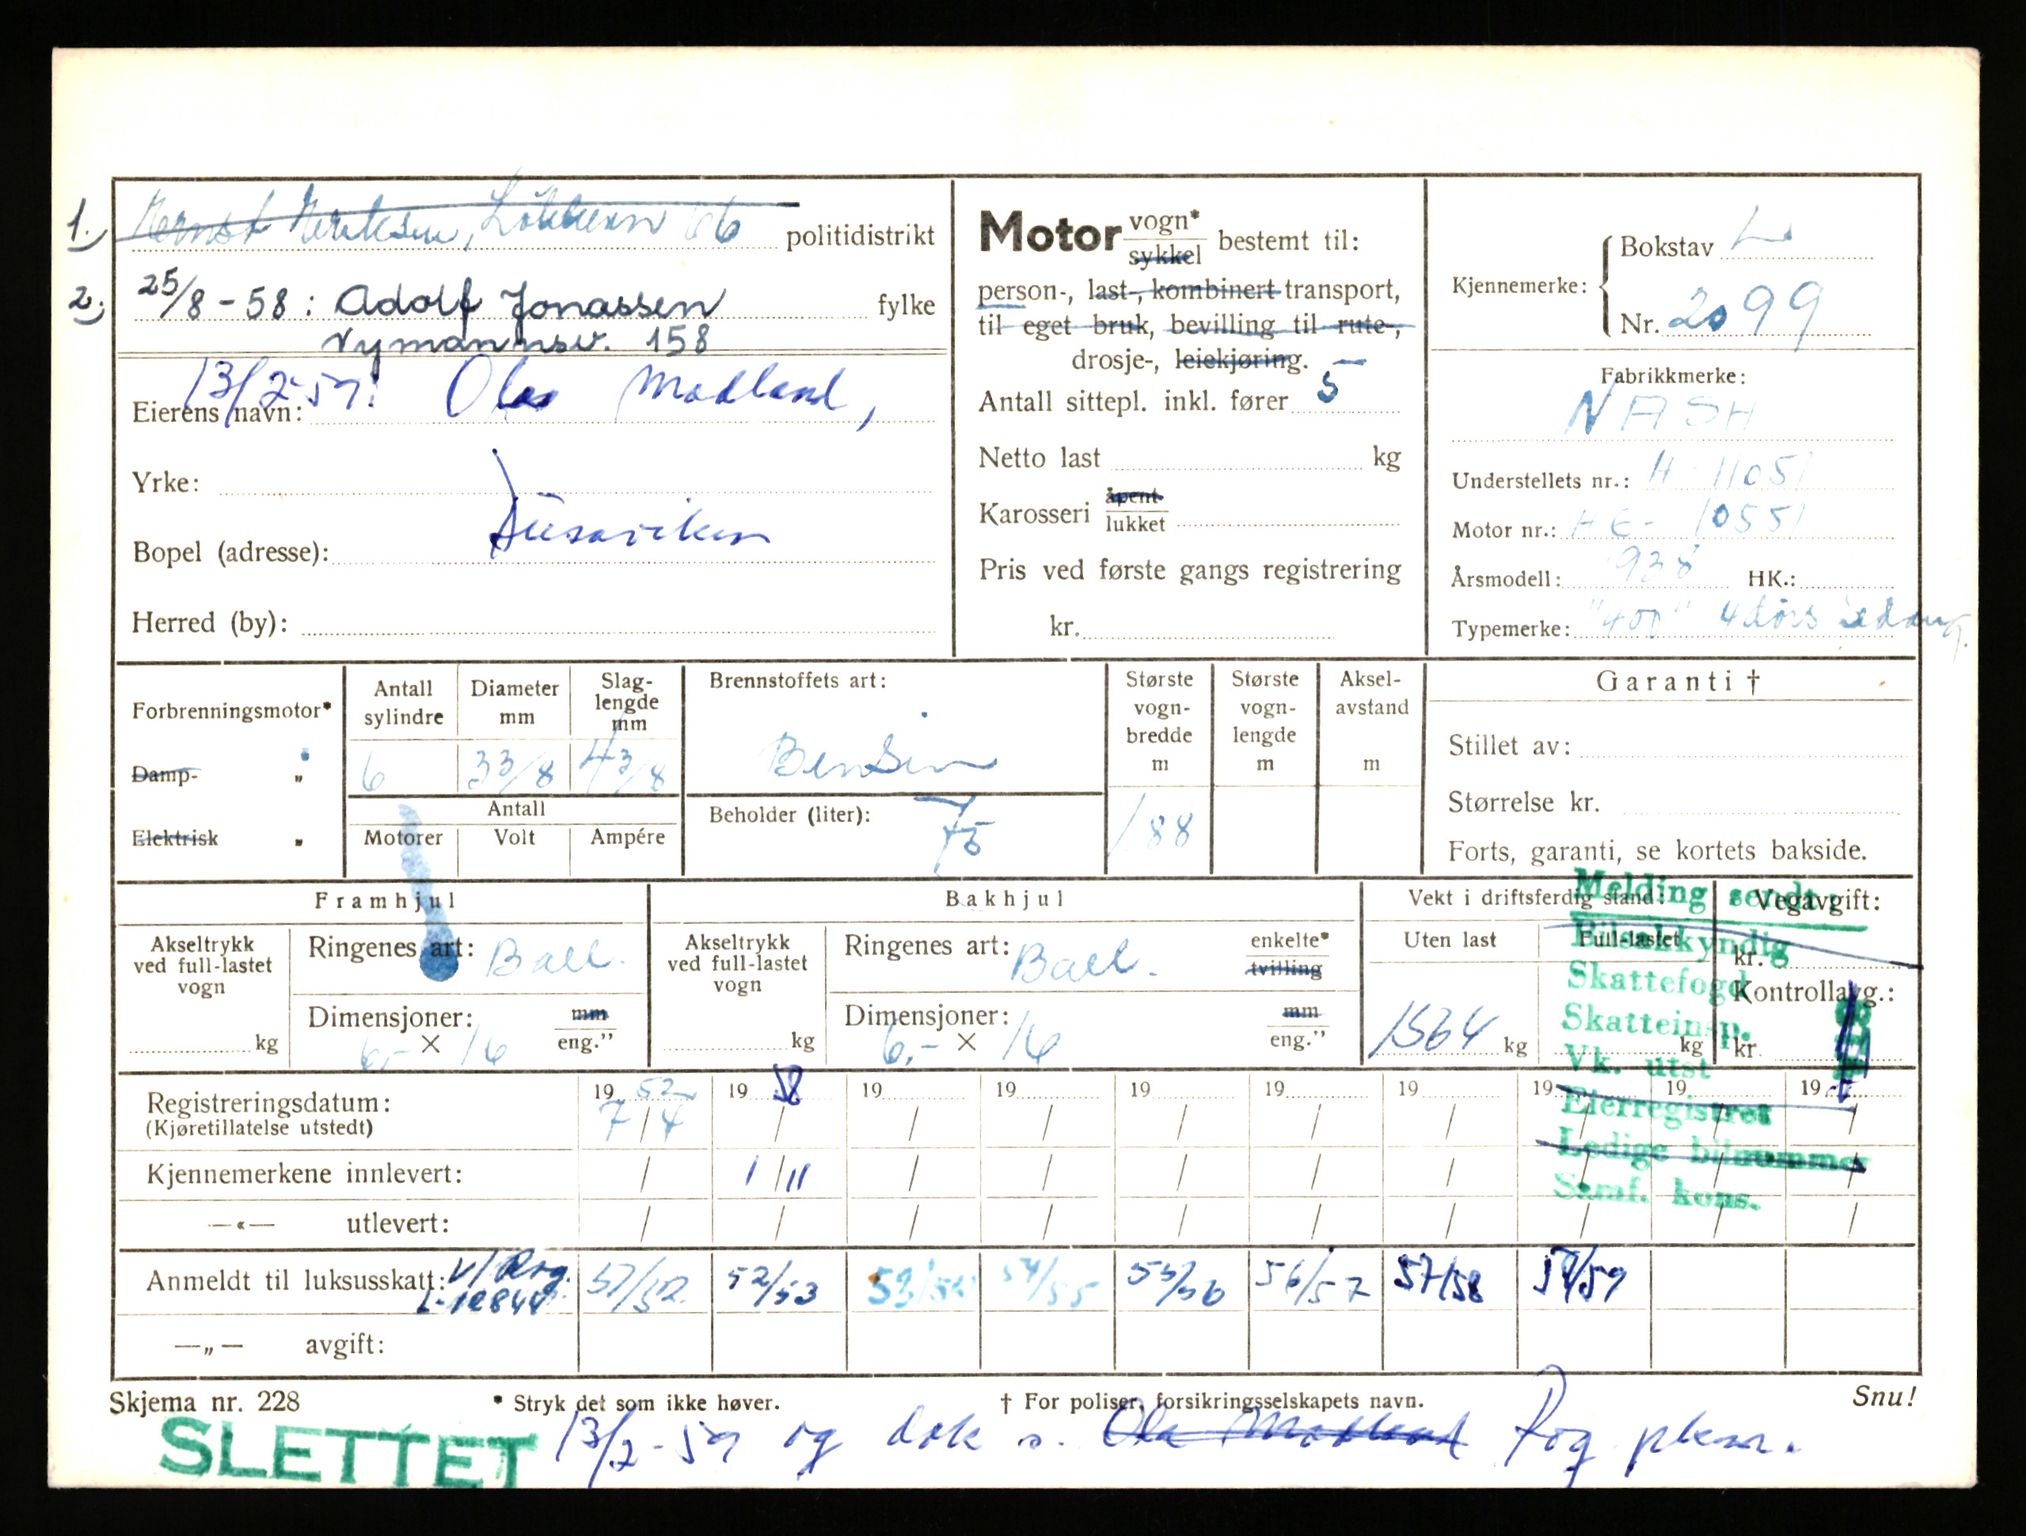 1. Henriksen, Løkkevn 66 politidistrikt
2. 25/8-58: Adolf Jonassen fylke
Nymannsv. 158
13/2-59: Ola Madland,
Eierens navn:
Yrke:
Dusaviken
Bopel (adresse):
Herred (by):
Motor vogn* sykkel bestemt til:
person-, last-, kombinert transport,
til eget bruk, bevilling til rute-,
drosje-, leiekjøring.
Antall sittepl. inkl. fører 5
Netto last kg
Karosseri åpent lukket
Pris ved første gangs registrering
kr.
Kjennemerke: Bokstav L
Nr. 2099
Fabrikkmerke:
NASH
Understellets nr.: H-11051
Motor nr.: HE-10551
Årsmodell: 1938 HK.:
Typemerke: "400" 4 dørs Sedan
Forbrenningsmotor*
Damp- „
Elektrisk „
Antall sylindre 6
Diameter mm 33/8
Slag-lengde mm 43/8
Antall
Motorer Volt Ampére
Brennstoffets art:
Bensin
Beholder (liter): 75
Største vogn-bredde m 188
Største vogn-lengde m
Aksel-avstand m
Garanti †
Stillet av:
Størrelse kr.
Forts, garanti, se kortets bakside.
Framhjul
Akseltrykk ved full-lastet vogn kg
Ringenes art: Ball.
Dimensjoner: 6,- × 16 mm eng.”
Bakhjul
Akseltrykk ved full-lastet vogn kg
Ringenes art: Ball. enkelte* tvilling
Dimensjoner: 6,- × 16 mm eng.”
Vekt i driftsferdig stand:
Uten last 1564 kg
Full-lastet kg
Vegavgift:
kr.
Kontrollavg.:
kr.
Melding sendt:
Bilsakkyndig
Skattefogd
Skatteinsp.
Vk. utst
Eierregistret
Ledige bilnummer
Samf. kons.
Registreringsdatum: 19 52 19 58 19 19 19 19 19 19 19 19
(Kjøretillatelse utstedt) 7/4 / / / / / / / / /
Kjennemerkene innlevert: / 1/11 / / / / / / / /
—«— utlevert: / / / / / / / / / /
Anmeldt til luksusskatt: V/Rog. L-12844 51/52 52/53 53/54 54/55 55/56 56/57 57/58 58/59
—„— avgift:
Skjema nr. 228 * Stryk det som ikke høver. † For poliser, forsikringsselskapets navn. Snu!
SLETTET 13/2-59 og dok s. Ola Madland Rog. pkm.